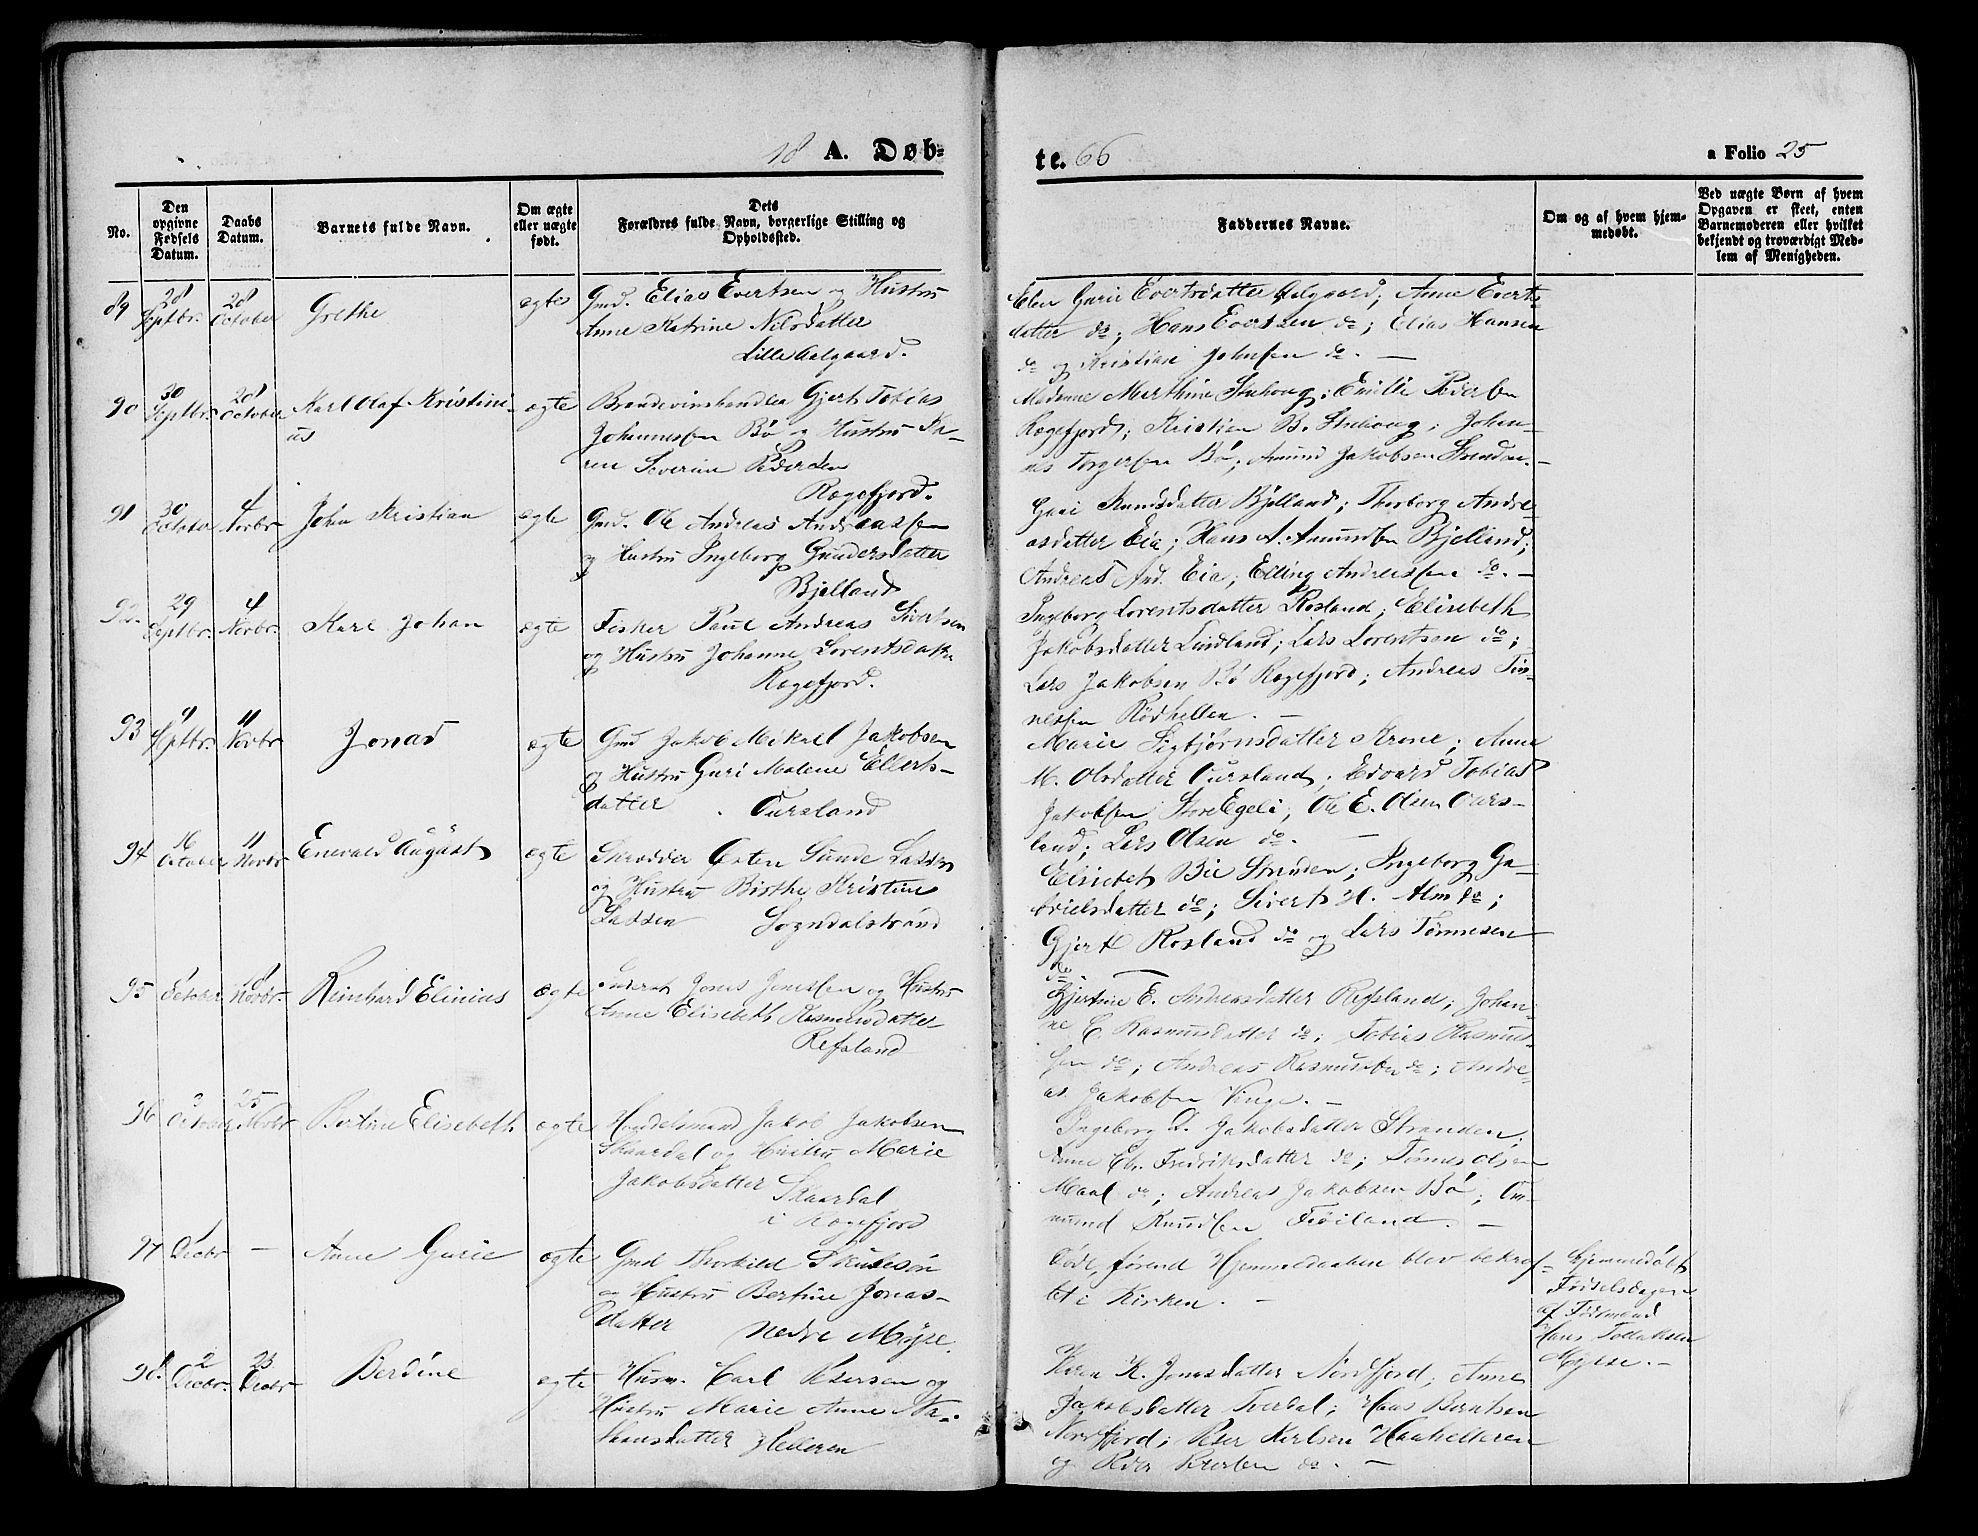 18 A. Døb-
te. 66
a Folio 25
No.
Den opgivne Fødsels Datum.
Daabs Datum.
Barnets fulde Navn.
Om ægte eller uægte født.
Dets Forældres fulde Navn, borgerlige Stilling og Opholdssted.
Faddernes Navne.
Om og af hvem hjemmedøbt.
Ved uægte Børn af hvem Opgaven er skeet, enten Barnemoderen eller hvilket bekjendt og troværdigt Medlem af Menigheden.
89 28 Septbr. 28 October Grethe ægte Gmd. Elias Evertsen og Hustru
Anne Katrine Nilsdatter
Lille Aalgaard.
Elen Gurie Evertsdatter Aalgaard; Anne Everts-
datter do; Hans Evertsen do; Elias Hansen
do og Kristian Johnsen do. —
90 30 Septbr. 28 October Karl Olaf Kristini-
us
ægte Brændevinshandler Gjert Tobias
Johannessen Bø og Hustru Ka-
ren Severine Pedersen
Rægefjord.
Madame Marthine Stuhoug; Emilie Pedersen
Rægefjord; Kristian B. Stuhoug; Johan-
nes Torgersen Bø; Amund Jakobsen Stranden. —
91 30 Octobr 4 Novbr John Kristian ægte Gmd. Ole Andreas Andreassen
og Hustru Ingeborg Gundersdatter
Bjelland
Guri Knudsdatter Bjelland; Thorborg Andre-
asdatter Eia; Hans A. Amundsen Bjelland;
Andreas And. Eia; Elling Andreassen do. —
92. 29 Septbr. 4 Novbr. Karl Johan ægte Fisker Paul Andreas Sivertsen
og Hustru Johanne Lorentsdatter
Rægefjord.
Ingeborg Lorentsdatter Rosland; Elisebeth
Jakobsdatter Lindland; Lars Lorentsen do;
Lars Jakobsen Bø Rægefjord; Andreas Tøn-
nesen Rødhellen. —
93 9 Septbr. 11 Novbr Jonas ægte Gmd Jakob Mikael Jakobsen
og Hustru Guri Malene Ellerts-
datter. Oursland
Marie Sigbjørnsdatter Arone; Anne
M. Olsdatter Oursland; Edvard Tobias
Jakobsen Store Egeli; Ole E. Olsen Ours-
land; Lars Olsen do. —
94 16 October 11 Novbr Enevald August ægte Skrædder Østen Sunde Lassen
og Hustru Birthe Kristine
Lassen Sogndalstrand
Elisebet Bie Stranden; Ingeborg Ga-
brielsdatter do; Sivert H. Alm do;
Gjert Rosland do og Lars Tønnesen
do. —
95 October 18 Novbr. Reinhard Elinius ægte Inderst Jonas Jonassen og Hustru
Anne Elisebeth Rasmusdatter
Refsland
Gjertine E. Andreasdatter Refsland; Johan-
ne E. Rasmusdatter do; Tobias Rasmus-
sen do; Andreas Rasmussen do; Andre-
as Jakobsen Vinge. —
96 October 25 Novbr Bertine Elisebeth ægte Handelsmand Jakob Jakobsen
Skaardal og Hustru Marie
Jakobsdatter Skaardal
i Rægefjord
Ingeborg D. Jakobsdatter Stranden;
Anne Chr. Fredriksdatter do; Tønnes Olsen
Maal do; Andreas Jakobsen Bø; Om-
mund Knudsen Frøiland. —
97 1 Decbr — Anne Gurie ægte Gmd Thorkild Skulesøn
og Hustru Bertine Jonas-
datter Nedre Mysse.
Død, førend Hjemmedaaben blev bekræf-
tet i Kirken. —
Hjemmedøbt
Fødselsdagen
af Fødmand
Hans Tollaksen
Mysse. —
98. 2 Decbr. 23 Decbr Berdine ægte Husm. Carl Petersen og
Hustru Marie Anne Na-
thansdatter Helleren
Karen K. Jonasdatter Nordfjord; Anne
Jakobsdatter Tverdal; Hans Berntsen
Nordfjord; Peter Karlsen Haahelleren
og Peder Petersen do. —